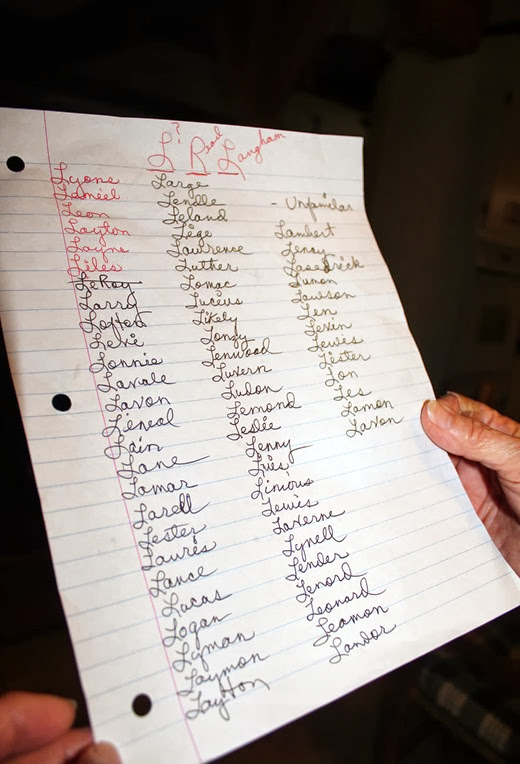 L? Read Langham
Lyons
Lamiel
Leon
Layton
Layne
Liles
LeRoy
Larry
Lofton
Levi
Lonnie
Lavale
Lavon
Lieneal
Lain
Lane
Lamar
Larell
Lester
Lauris
Lance
Lucas
Logan
Lyman
Laymon
Layton
Large
Lendle
Leland
Lige
Lawrence
Luther
Lomac
Lucius
Likely
Lonzy
Lenwood
Luvern
Ludon
Lemond
Leslie
Lenny
Luis
Linious
Lewis
Laverne
Lynell
Lender
Lenord
Leonard
Leamon
Landor
- Unfamilar
Lambert
Leroy
Lasedrick
Lumon
Lawson
Len
Levin
Lewis
Lister
Lon
Les
Lamon
Lavon